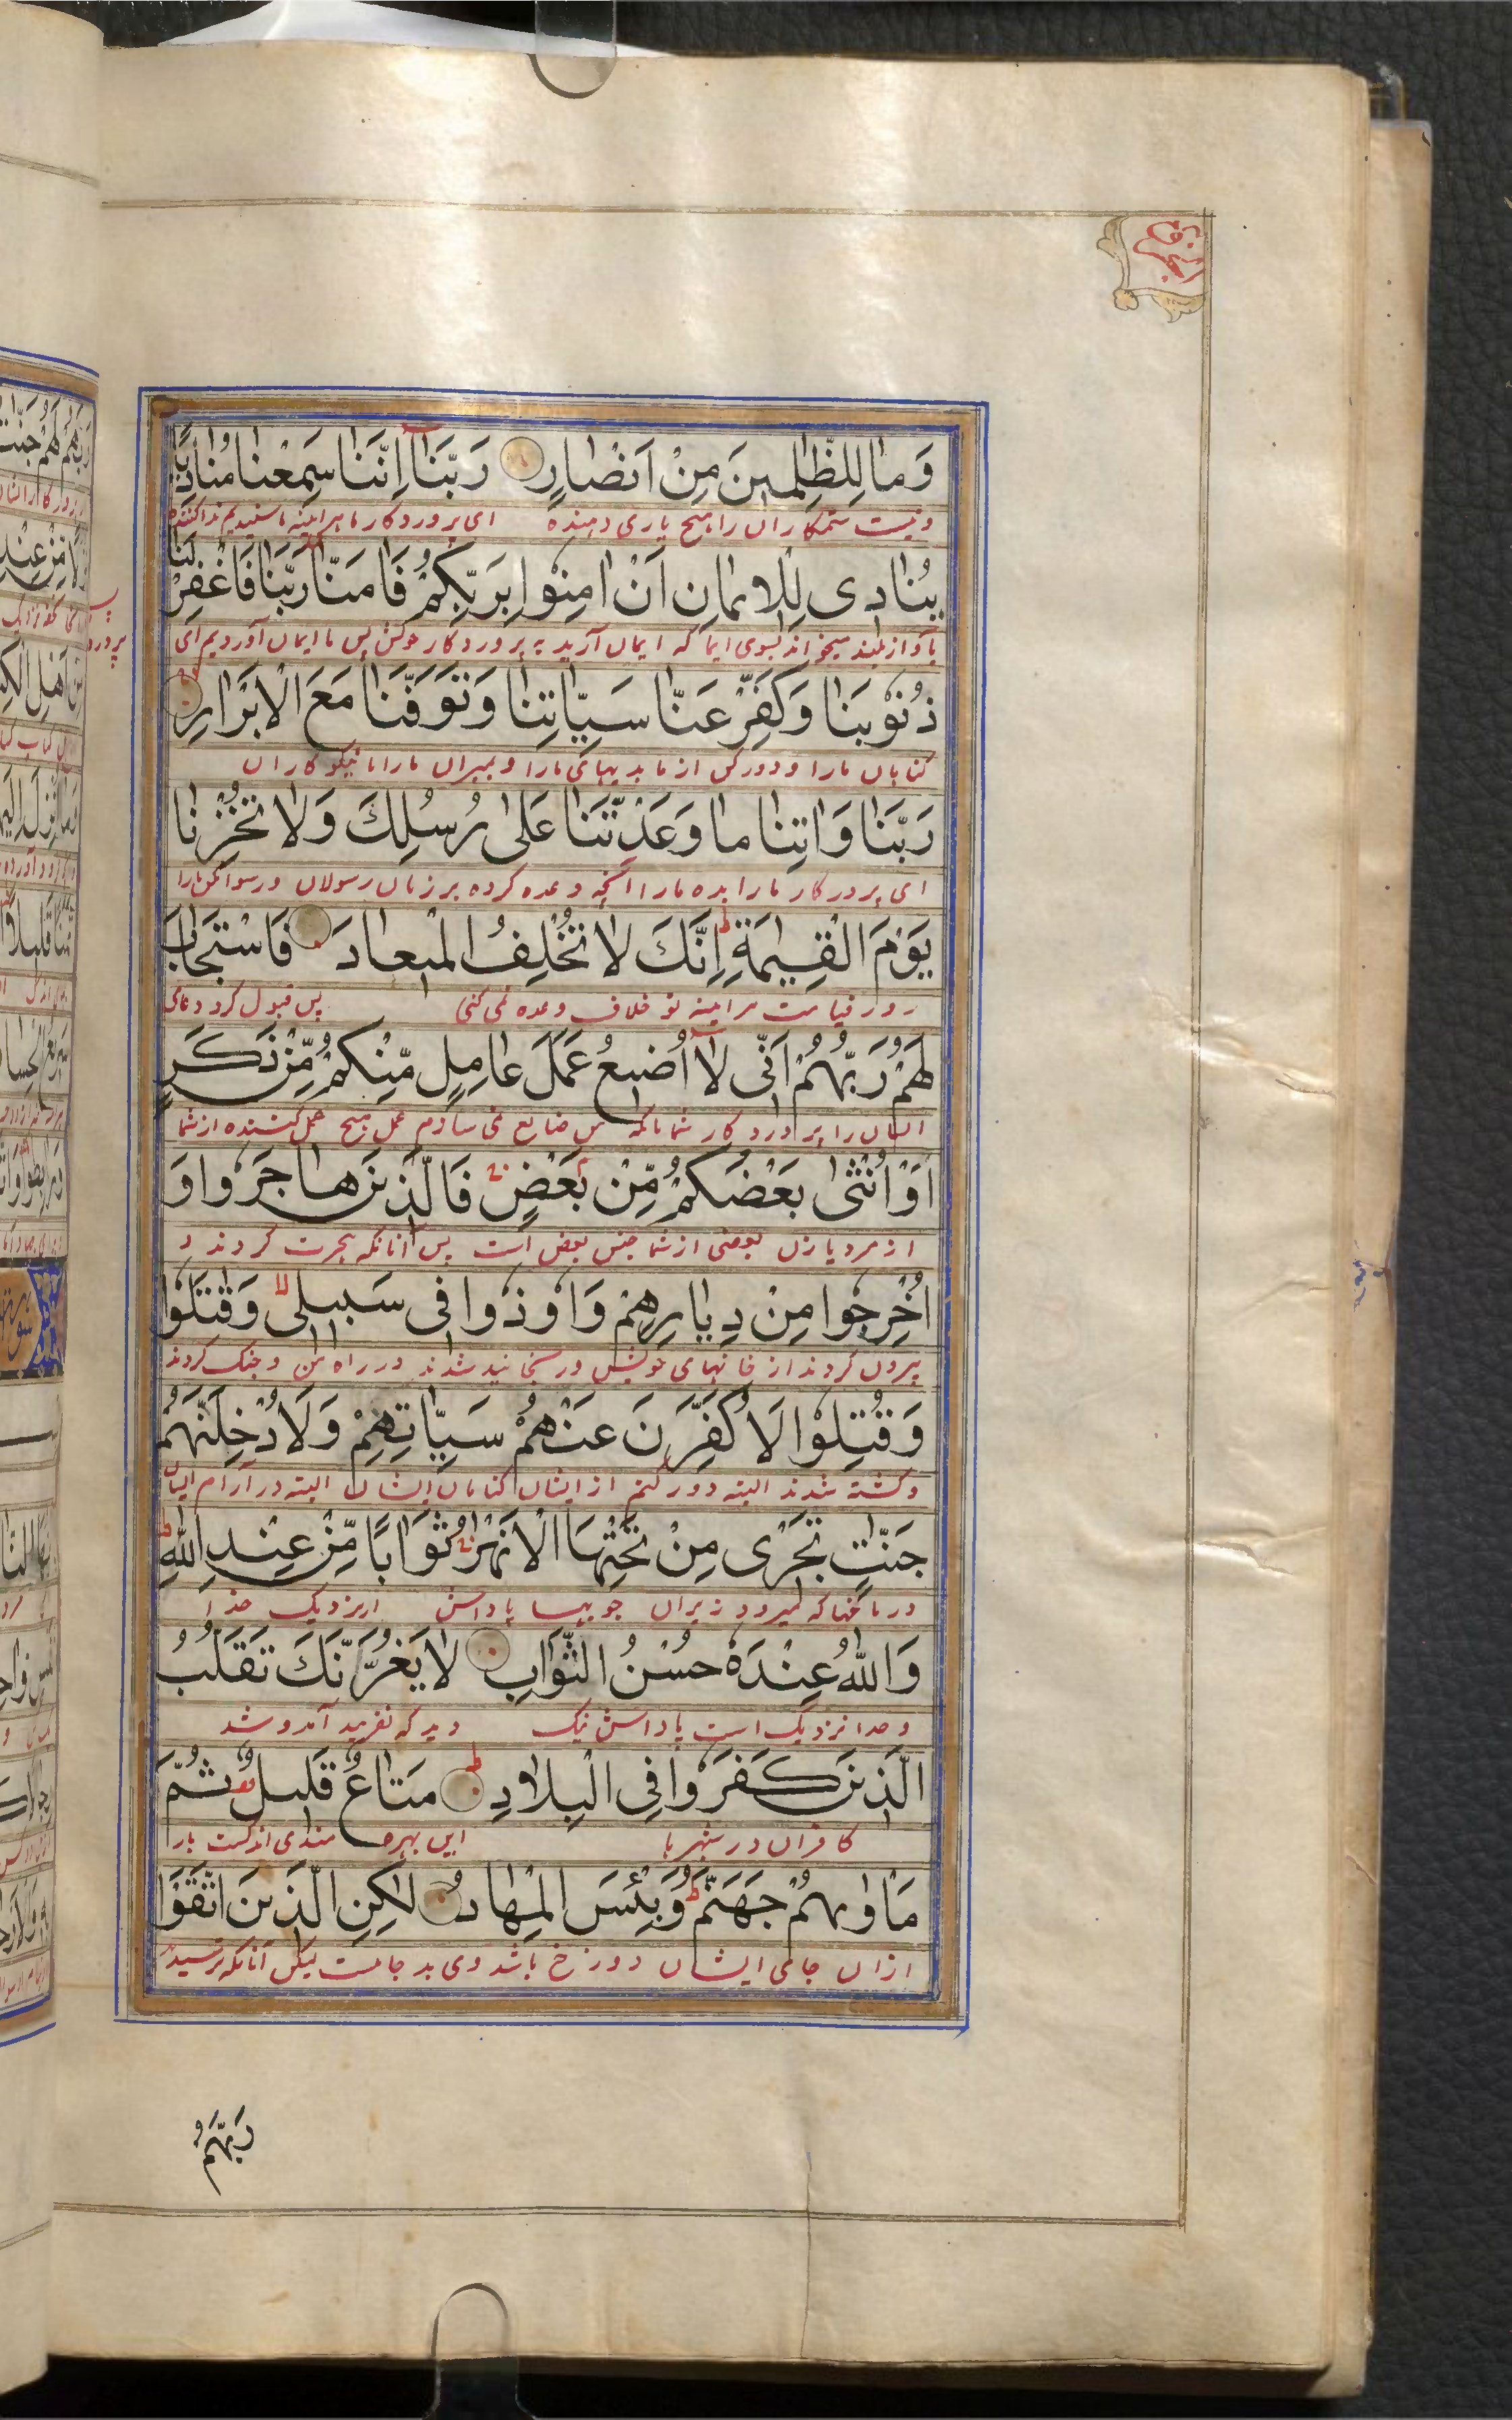 وَمَا لِلظّٰلِمِينَ مِنْ اَنْصَارٍ رَبَّنَا اِنَّنَا سَمِعْنَا مُنَادِيًا
و نیست ستمکاران را هیچ یاری دهنده ای پروردکار ما هراینه ما شنیدیم ندا کننده
يُنَادِى لِلْاِيمَانِ اَنْ اٰمِنُوا بِرَبِّكُمْ فَاٰمَنَّا رَبَّنَا فَاغْفِرْ لَنَا
باواز بلند میخواند بسوی ایما که ایمان آرید به پروردکار خوکش پس ما ایمان آوردیم ای
ذُنُوْبَنَا وَكَفِّرْ عَنَّا سَيِّاٰتِنَا وَتَوَفَّنَا مَعَ الْاَبْرَارِ
کناهان ما را و دور کن از ما بدیهای ما را و بمیران ما را با نیکو کاران
رَبَّنَا وَاٰتِنَا مَا وَعَدْتَّنَا عَلٰى رُسُلِكَ وَلَا تُخْزِنَا
ای پروردکار ما را بده ما را آنچه وعده کرده بر زبان رسولان و رسوا مکن ما را
يَوْمَ الْقِيٰمَةِ اِنَّكَ لَا تُخْلِفُ الْمِيعَادَ فَاسْتَجَابَ
روز قیامت هراینه تو خلاف وعده نمی کنی پس قبول کرد دعای
لَهُمْ رَبُّهُمْ اَنِّى لَا اُضِيعُ عَمَلَ عَامِلٍ مِّنْكُمْ مِّنْ ذَكَرٍ
ایشان را پروردکار شما بانکه من ضایع نمی سازم عمل هیچ عمل کننده از شما
اَوْ اُنْثٰى بَعْضُكُمْ مِّنْ بَعْضٍ فَالَّذِينَ هَاجَرُوا وَ
از مرد یا زن بعضی از شما جنس بعض است پس آنانکه هجرت کردند و
اُخْرِجُوا مِنْ دِيَارِهِمْ وَاُوذُوا فِى سَبِيلِى وَقٰتَلُوْا
بیرون کردند از خانهای خویش و رسنجانید شدند در راه من و جنک کردند
وَقُتِلُوْا لَاُكَفِّرَنَّ عَنْهُمْ سَيِّاٰتِهِمْ وَلَاُدْخِلَنَّهُمْ
و کشته شدند البته دور کنم از ایشان کناهان ایشان البته در آرام ایشان
جَنّٰتٍ تَجْرِى مِنْ تَحْتِهَا الْاَنْهٰرُ ثَوَابًا مِّنْ عِنْدِ اللّٰهِ
در باغها که میرود زیران جویها پاداش از نزدیک خدا
وَاللّٰهُ عِنْدَهٗ حُسْنُ الثَّوَابِ لَا يَغُرَّنَّكَ تَقَلُّبُ
و خدا نزدیک است پاداش نیک دید که نفریبد آمد و شد
الَّذِينَ كَفَرُوا فِى الْبِلَادِ مَتَاعٌ قَلِيلٌ ثُمَّ
کافران در شهرها این بهره مندی اندکست باز
مَاْوٰىهُمْ جَهَنَّمُ وَبِئْسَ الْمِهَادُ لٰكِنِ الَّذِينَ اتَّقَوْا
ازان جای ایشان دوزخ باشد وی بد جاست لیکن آنانکه ترسیدند
رَبَّهُمْ